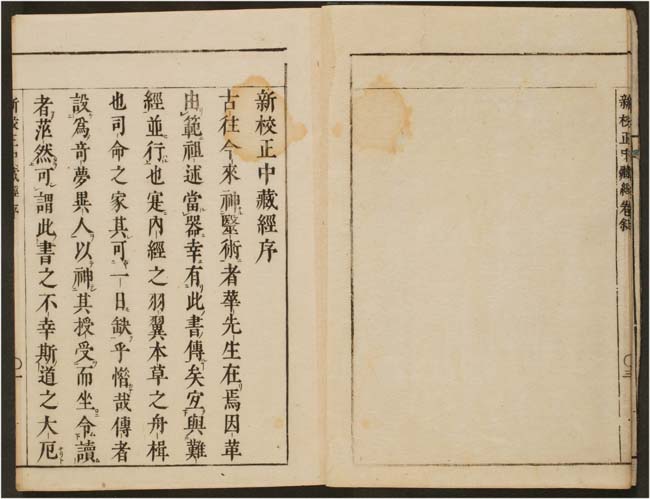 新校正中藏經卷敘 〇三
新校正中藏經序
古往今來神毉術者華先生在焉因革
由範祖述當器幸有此書傳矣宜與難
經並行也寔內經之羽翼本草之舟楫
也司命之家其可一日缺乎惜哉傳者
設爲奇夢異人以神其授受而坐令讀
者茫然可謂此書之不幸斯道之大厄
新校正中藏經序 〇一